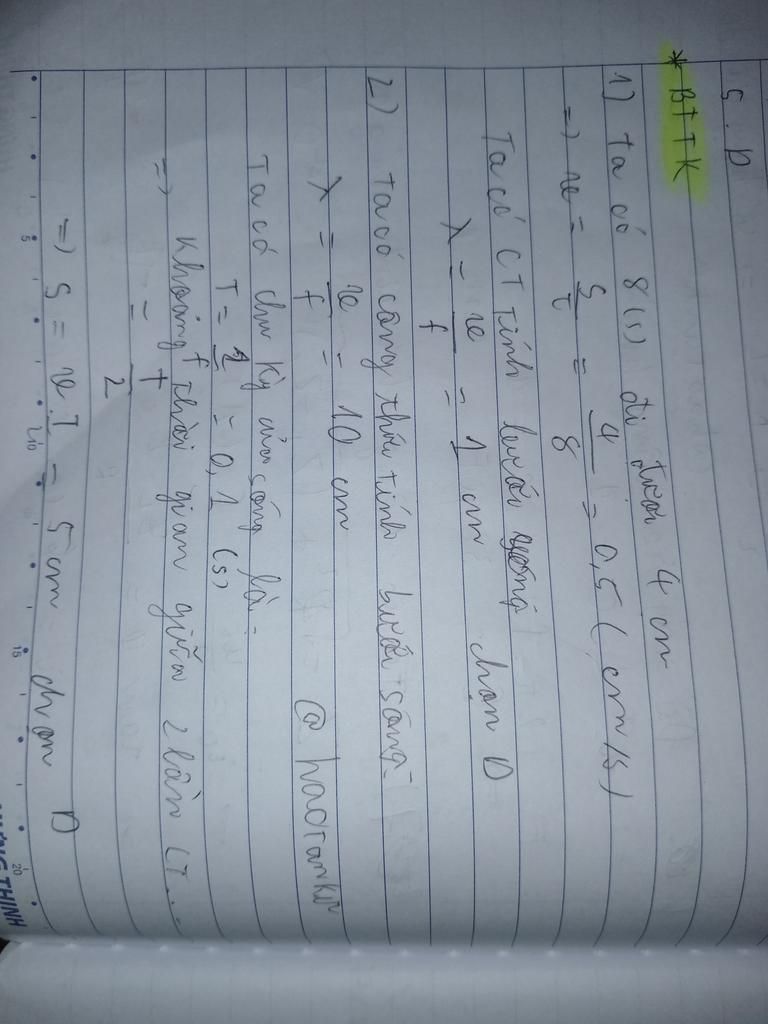 5. D
* BTTK
1) Ta có 8(s) đi được 4 cm
=) v = S/t = 4/8 = 0,5 (cm/s)
Ta có CT tính bước sóng
λ = v/f = 1 cm chọn D
2) Ta có công thức tính bước sóng:
λ = v/f = 10 cm @haotanku
Ta có chu kỳ của sóng là:
T = 1/f = 0,1 (s)
=) Khoảng thời gian giữa 2 lần CT...
= T/2
=) S = v.T = 5 cm chọn D
5 10 15 20
THINH